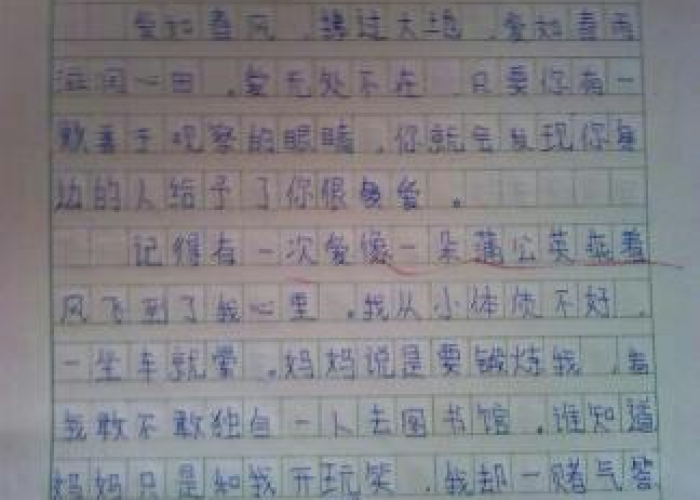 爱如春风,拂过大地,爱如春雨
滋润心田,爱无处不在,只要你有一
双善于观察的眼睛,你就会发现你身
边的人给予了你很多爱。
记得有一次爱像一朵蒲公英乘着
风飞到了我心里,我从小体质不好,
一坐车就晕,妈妈说是要锻炼我,看
我敢不敢独自一人去图书馆,谁知道
妈妈只是和我开玩笑,我却一赌气答